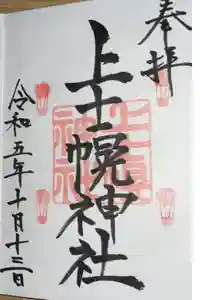 奉拝
上士幌神社
令和五年十月十三日